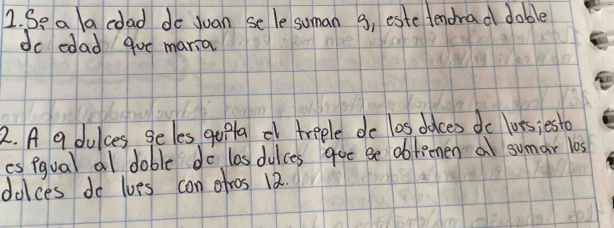 1. Se a la edad de Juan se le suman 3, este tendra el doble
de edad que maria
2. A 9 dulces se les quita el treple de los dulces de lues; esto
es igual al doble de los dulces que se obtienen al sumar los
dulces de lues con otros 12.